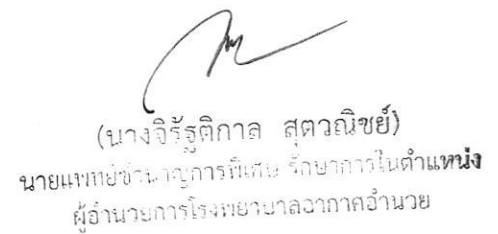 (นางจิรัฐติกาล สุตวณิชย์)
นายแพทย์ชำนาญการพิเศษ รักษาการในตำแหน่ง
ผู้อำนวยการโรงพยาบาลอากาศอำนวย